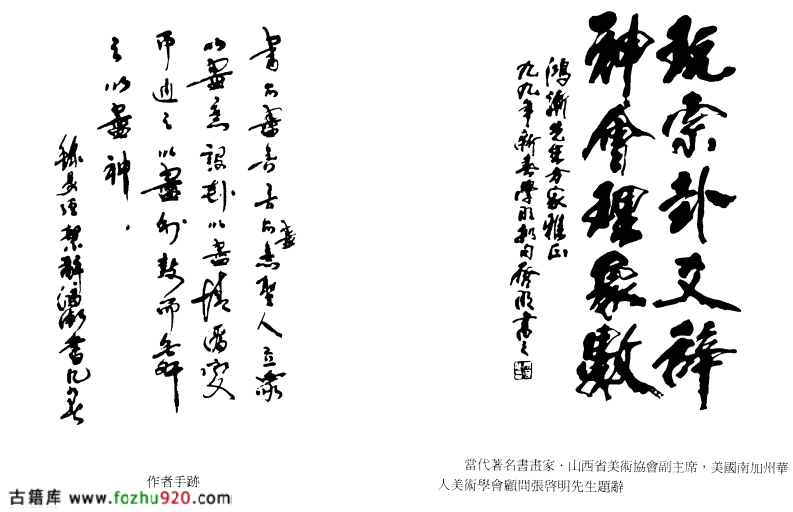 玩索卦爻辭
神會理象數
鴻漸先生方家雅正
九九年新春學明撰句啓明書之
當代著名書畫家·山西省美術協會副主席，美國南加州華
人美術學會顧問張啓明先生題辭
書不盡言言不盡意聖人立象
以盡意設卦以盡情偽變
而通之以盡利鼓而舞
之以盡神
錄易經繫辭鴻漸書己卯春
作者手跡
古籍库 www.fozhu920.com